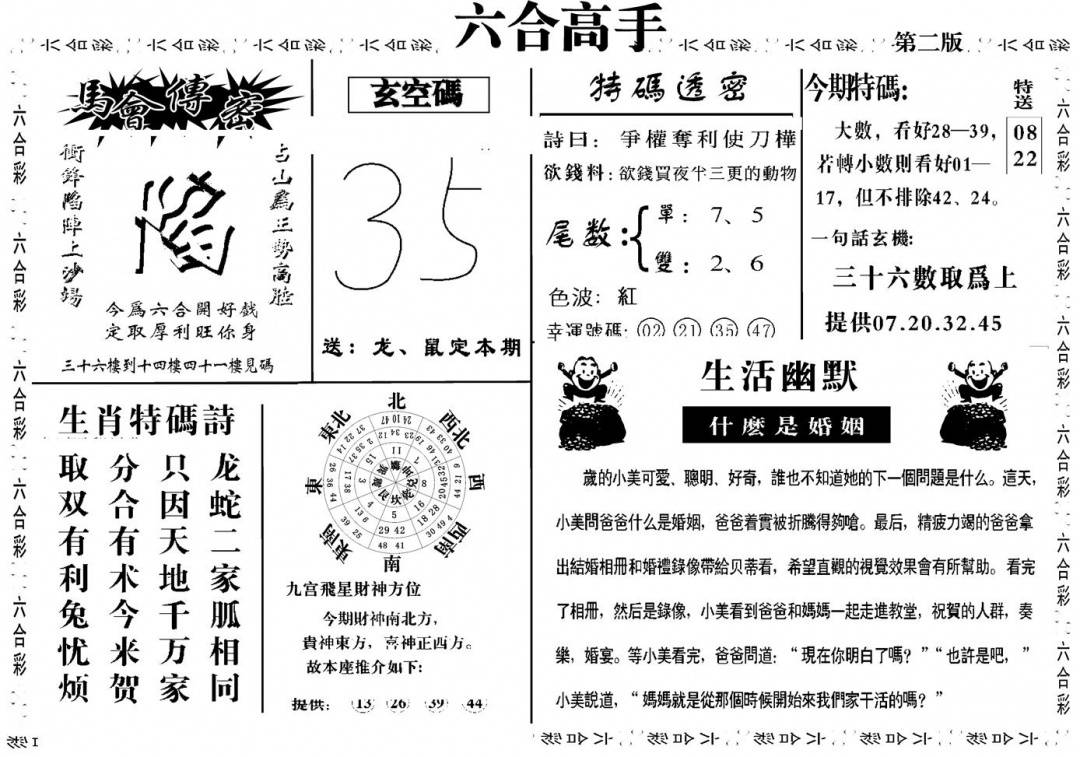 六合高手
第二版
馬會傳密
衝鋒陷陣上沙場
占山爲王勢高陞
今爲六合開好戲
定取厚利旺你身
三十六樓到十四樓四十一樓見碼
玄空碼
35
送：龙、鼠定本期
特碼透密
詩曰：爭權奪利使刀樺
欲錢料：欲錢買夜半三更的動物
尾数：
單：7、5
雙：2、6
色波：紅
幸運號碼：02 21 35 47
今期特碼:
特送
08
22
大數，看好28—39，
若轉小數則看好01—
17，但不排除42、24。
一句話玄機:
三十六數取爲上
提供07.20.32.45
生肖特碼詩
龙蛇二家胍相同
只因天地千万家
分合有术今来贺
取双有利兔忧烦
北
東北
西北
東
西
東南
西南
南
九宫飛星財神方位
今期財神南北方，
貴神東方，喜神正西方。
故本座推介如下:
提供: 13 26 39 44
生活幽默
什麽是婚姻
歲的小美可愛、聰明、好奇，誰也不知道她的下一個問題是什么。這天，
小美問爸爸什么是婚姻，爸爸着實被折騰得夠嗆。最后，精疲力竭的爸爸拿
出結婚相冊和婚禮錄像帶給贝蒂看，希望直觀的視覺效果會有所幫助。看完
了相冊，然后是錄像，小美看到爸爸和媽媽一起走進教堂，祝賀的人群，奏
樂，婚宴。等小美看完，爸爸問道：“現在你明白了嗎？”“也許是吧，”
小美說道，“媽媽就是從那個時候開始來我們家干活的嗎？”
六合彩 六合彩 六合彩 六合彩 六合彩 六合彩